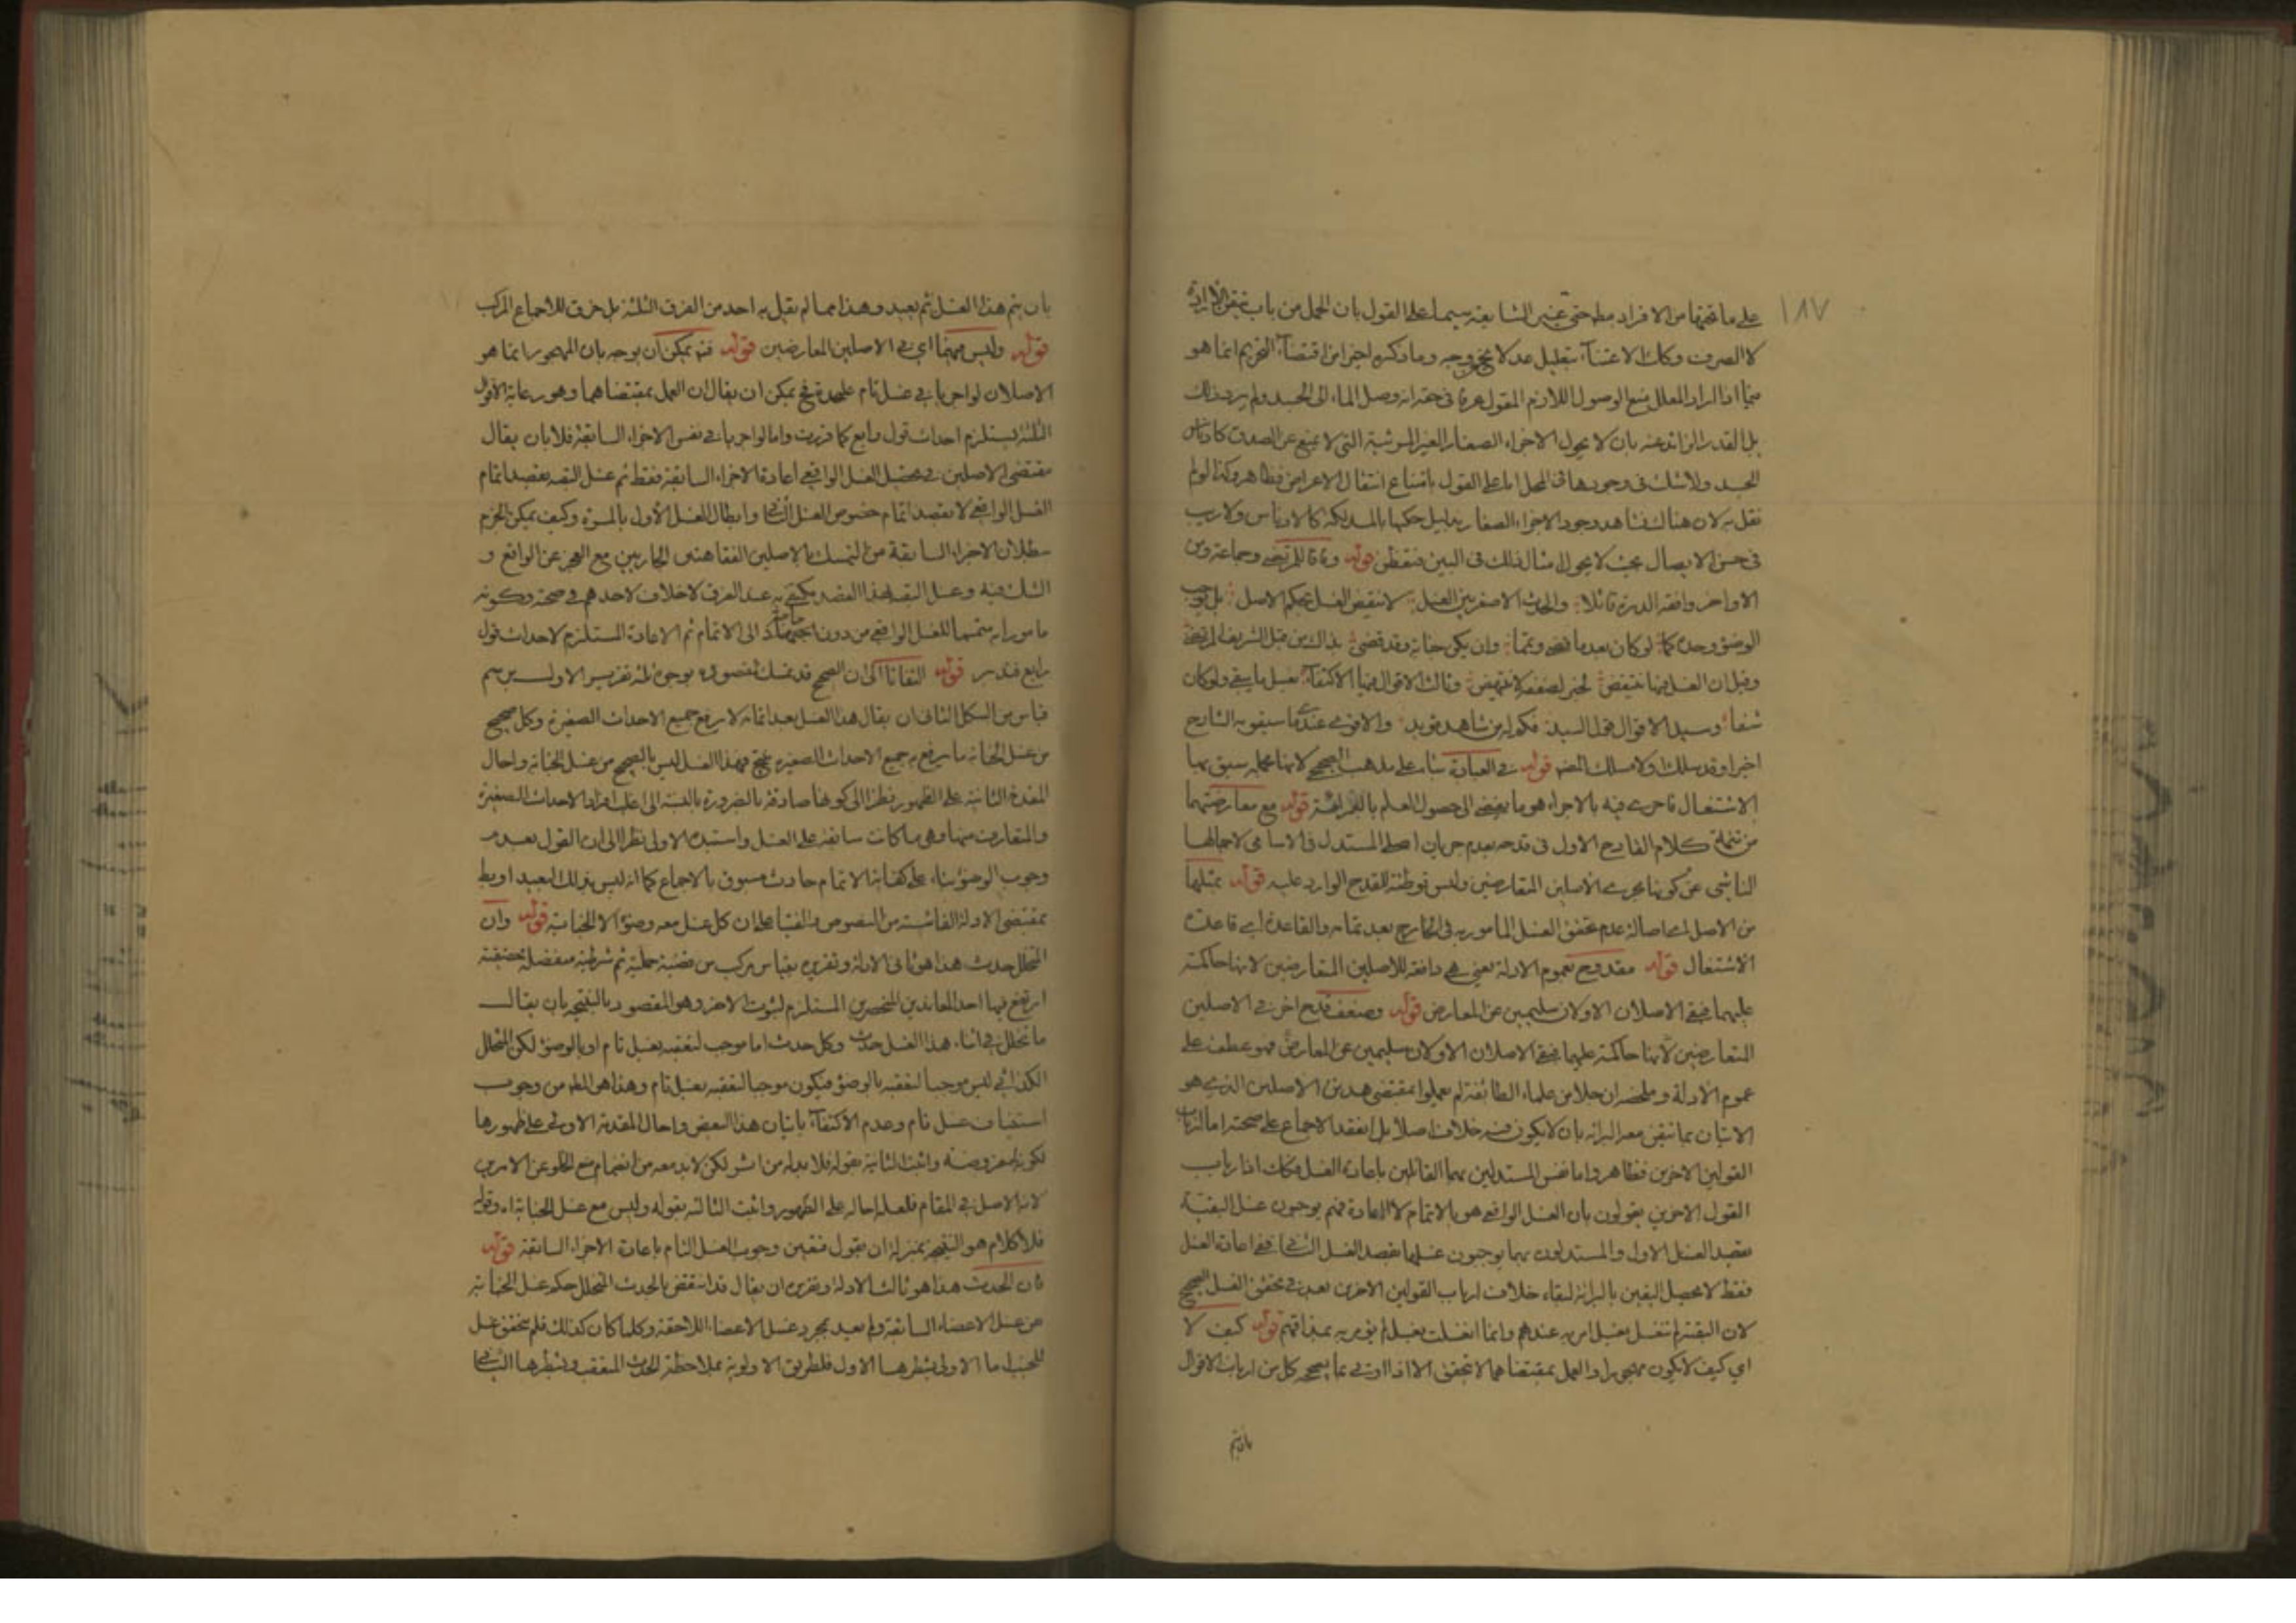 ١٨٧
على ما تحتها من الافراد مط حتى غير الشايعة سيما على القول بان الحمل من باب تيقن الارادة
لا الصرف وكان الاعتناء بتعليل عدلا يخ وجه وما ذكره اخيرا من اقتضاء التحريم انما هو
اذا اراد المعلل منع الوصول اللازم المقول عرفا فى حقه انه وصل الماء الى الجسد ولم يرد ذلك
بل القدر الزائد عنه بان لا يحول الاجزاء الصغار الغير المرئية التى لا يمنع عن الصدق كاوناس
الجسد ولا شك فى وجودها فى المحل اما على القول بامتناع انتقال الاعراض فظاهر وكذا لو لم
نقل به لان هناك نشاهد وجود الاجزاء الصغار بدليل حكها بالمدلكة كالاوناس ولا ريب
فى حسن الايصال بحيث لا يحول امثال ذلك فى البين فتفطن قوله وفاقا للمرتضى وجماعة ومن
الاواخر وافقه الدرة قائلا والحدث الاصغر بين الغسل لا ينقض الغسل بحكم الاصل بل يوجب
الوضوء وحده كما لو كان بعدما قضى وتما وان يكن جنابة وقد قضى بذاك من قبل الشريف المرتضى
وقيل ان الغسل فيها ينتقض لخبر لضعفه لا ينتهض وثالث الاقوال فيها الاكتفاء بغسل ما بقى ولو كان
شفا وسيد الاقوال قول السيد فكم له من شاهد مؤيد والاقوى عندى ما سيقويه الشارح
اخيرا وقد سلك اولا مسلك قوله فى العبادة بناء على مذهب الصحيح لانها عمله سبق بها
الاشتغال فاحرى فيه بالاجراء هو ما يفضى الى حصول العلم بالفراغة قوله مع معارضتهما
من تتمة كلام القادح الاول فى قدحه بعدم جريان اصلى المستدل فى الاسامى لاجمالها
الناشى عن كونها مجرى الاصلين المتعارضين وليس توطئة للقدح الوارد عليه قوله بمثلهما
من الاصل اى اصالة عدم تحقق الغسل المامور به فى الخارج بعد تمامه والقاعدة اى قاعدة
الاشتغال قوله مقدوح بعموم الادلة يعنى هى دافعة للاصلين المتعارضين لانها حاكمة
عليهما فبقى الاصلان الاولان سليمين عن المعارض قوله وضعف قدح اخر فى الاصلين
المتعارضين لانها حاكمة عليهما فبقى الاصلان الاولان سليمين عن المعارض فهو عطف على
عموم الادلة وملخصه ان جلا من علماء الطائفة لم يعملوا بمقتضى هذين الاصلين الذى هو
الاتيان بما تيقن معه البرائة بان لا يكون فيه خلاف اصلا بل انعقد الاجماع على صحته اما ارباب
القولين الاخرين فظاهر واما نفس المستدلين بهما القائلين باعادة الغسل فكذا اذ ارباب
القول الاخرين يقولون بان الغسل الواقعى هو بالاتمام لا الاعادة فهم يوجبون غسل البقية
بقصد الغسل الاول والمستدلون بهما يوجبون غسلها بقصد الغسل الثانى ففى اعادة الغسل
فقط لا يحصل اليقين بالبرائة لبقاء خلاف ارباب القولين الاخرين بعد فى تحقق الغسل الصحيح
لان البقية لم تغسل بغسل امر به عندهم وانما انغسلت بغسل لم يؤمر به بمذاقهم قوله كيف لا
اى كيف لا يكون مهجورا والعمل بمقتضاهما لا يتحقق الا اذا اوتى بما يصححه كل من ارباب الاقوال
بان يتم
بان يتم هذا الغسل ثم يعيد وهذا مما لم يقل به احد من الفرق الثلثة بل خرق للاجماع المركب
قوله وليس مهما اى فى الاصلين المعارضين قوله فتم يمكن ان يوجه بان المهجور انما هو
الاصلان لو اجريا فى غسل تام عليحدة فح يمكن ان يقال ان العمل بمقتضاهما وهو رعاية الاقوال
الثلثة يستلزم احداث قول رابع كما قررت واما لو اجريا فى نفس الاجزاء السابقة فلا بان يقال
مقتضى الاصلين فى تحصيل الغسل الواقعى اعادة الاجزاء السابقة فقط ثم غسل البقية بقصد اتمام
الغسل الواقعى لا بقصد اتمام خصوص الغسل الثانى وابطال الغسل الاول بالمرة وكيف يمكن الجزم
ببطلان الاجزاء السابقة مع التمسك بالاصلين الفقاهتى الجاريين مع العجز عن الواقع و
الشك فيه وغسل البقية بهذا القصد يكتفى به عند الفرق لا خلاف لاحدهم فى صحته وكونه
مامورا به متمما للغسل الواقعى من دون حاجة الى الاتمام ثم الاعادة المستلزم لاحداث قول
رابع فتدبر قوله التفاتا الى ان الصحيح قد تمسك لمقصوده بوجوه ثلثة تقرير الاول
قياس من الشكل الثانى ان يقال هذا الغسل بعد اتمامه لا يرفع جميع الاحداث الصغيرة وكل صحيح
من غسل الجنابة ما يرفع به جميع الاحداث الصغيرة ينتج فهذا الغسل ليس بالصحيح من غسل الجنابة واحال
المقدمة الثانية على الظهور نظرا الى كونها صادقة بالضرورة بالنسبة الى اغلب افراد الاحداث الصغيرة
والمتعارف منها وهى ما كانت سابقة على الغسل واستبده الاولى نظرا الى ان القول بعدم
وجوب الوضوء بناء على كفاية الاتمام حادث مسبوق بالاجماع كما انه ليس بذلك البعيد اوبط
بمقتضى الادلة الفائتة من النصوص والفتيا على ان كل غسل معه وضوء الا الجنابة قوله وان
المتخلل حدث هذا هو ثانى الادلة وتقريره بقياس مركب من قضية حملية ثم شرطية منفصلة حقيقية
ارتفع فيها احد المعاندين المنحصرين المستلزم لثبوت الاخر وهو المقصود بالنتيجة بان يقال
ما تخلل فى اثناء هذا الغسل حدث وكل حدث اما موجب لتعقبه بغسل تام او بالوضوء لكن المتخلل
الكذائى ليس موجبا لتعقبه بالوضوء فيكون موجبا لتعقبه بغسل تام وهذا هو المط من وجوب
استيناف غسل تام وعدم الاكتفاء باتيان هذا البعض واحال المقدمة الاولى على ظهورها
لكونها مفروضة واثبت الثانية بقوله فلا بد له من اثر لكن لا بد معه من انضمام منع الخلو عن الامرين
لانه الاصل فى المقام فلعله احاله على الظهور واثبت الثالثة بقوله وليس مع غسل الجنابة اه وقوله
فلا كلام هو النتيجة بمنزلة ان يقول فتعين وجوب الغسل التام باعادة الاجزاء السابقة قوله
فان الحدث هذا هو ثالث الادلة وتقريره ان يقال قد انتقض بالحدث المتخلل حكم غسل الجنابة
من غسل الاعضاء السابقة ولم يعيد بمجرد غسل الاعضاء اللاحقة وكلما كان كذلك فلم يتحقق غسل
للجنب اما الاولى بشطرها الاول فلطريق الاولوية بملاحظة الحدث المتعقب وبشطرها الثانى